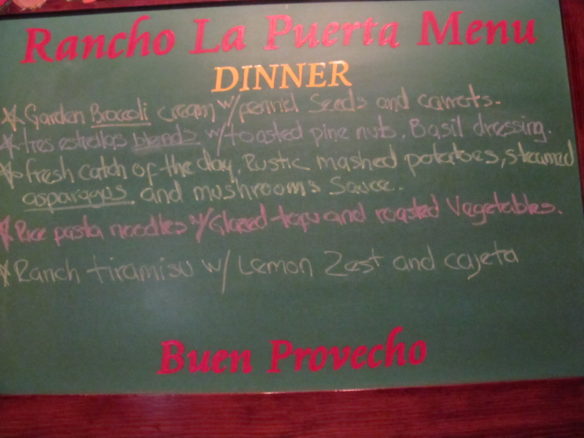 Rancho La Puerta Menu
DINNER
Garden Broccoli cream w/ fennel seeds and carrots.
tres estrellas blends w/ toasted pine nuts. Basil dressing.
fresh catch of the day. Rustic mashed potatoes, steamed
asparagus and mushrooms sauce.
Rice pasta noodles w/ Glazed tofu and roasted Vegetables.
Ranch tiramisu w/ Lemon Zest and cajeta
Buen Provecho